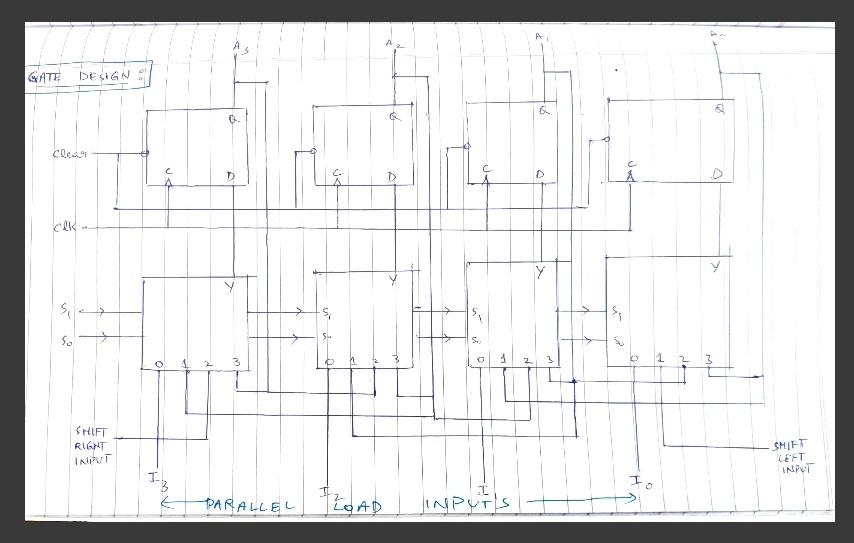 A3 A2 A1
GATE DESIGN :
Q Q Q Q
Clear
C D C D C D C D
Clk
Y Y Y Y
S1 S1 S1 S1
S0 S0 S0 S0
0 1 2 3 0 1 2 3 0 1 2 3 0 1 2 3
SHIFT
RIGHT
INPUT
SHIFT
LEFT
INPUT
I3 I2 I I0
PARALLEL LOAD INPUT'S